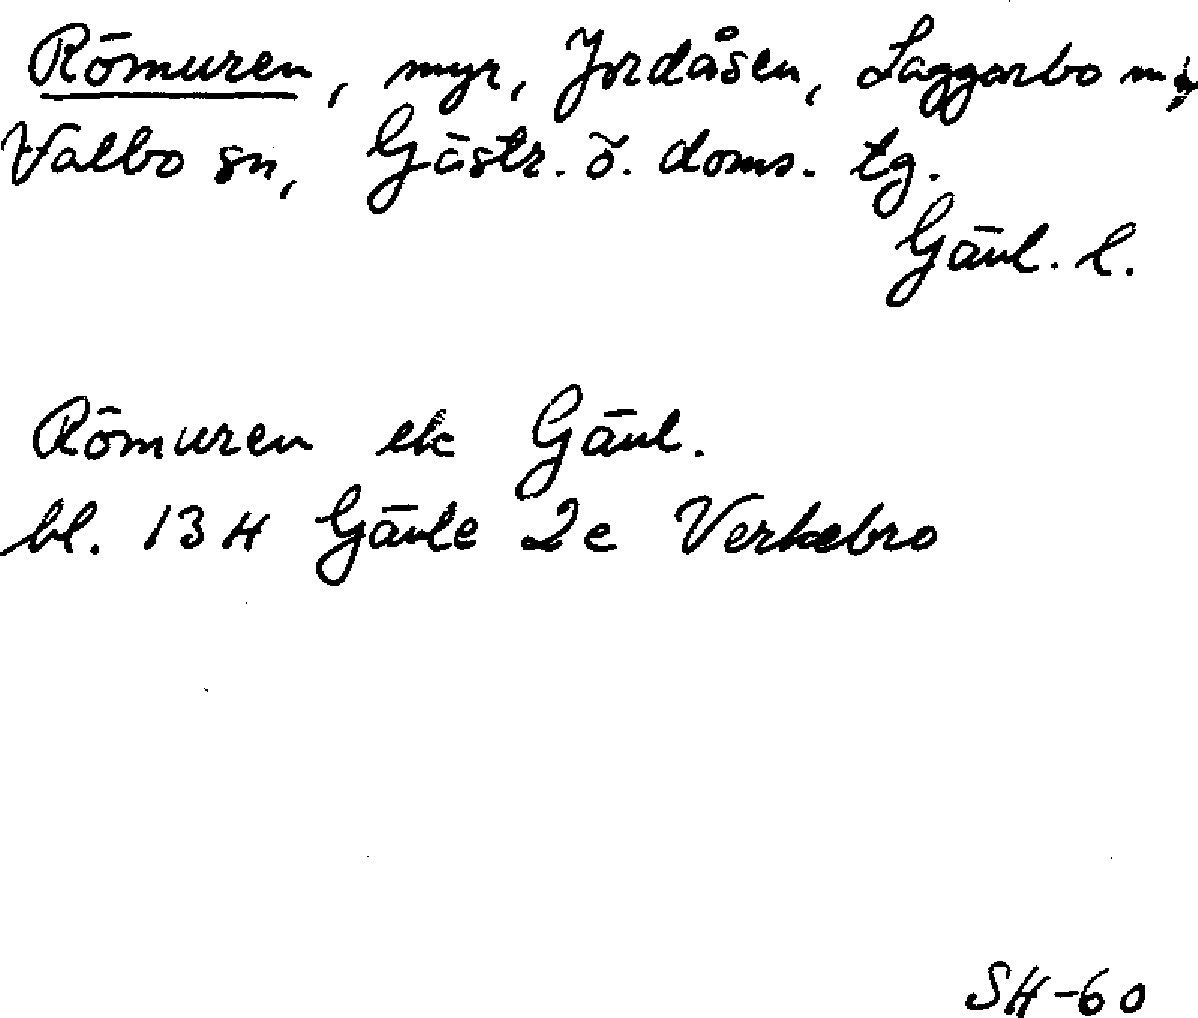 Römuren, myr, Jordåsen, Laggarbo m fl,
Valbo sn, Gästr. ö. doms. tg.
Gävl. l.
Römuren ek Gävl.
bl. 13 H Gävle 2c Verkebro
SH-60